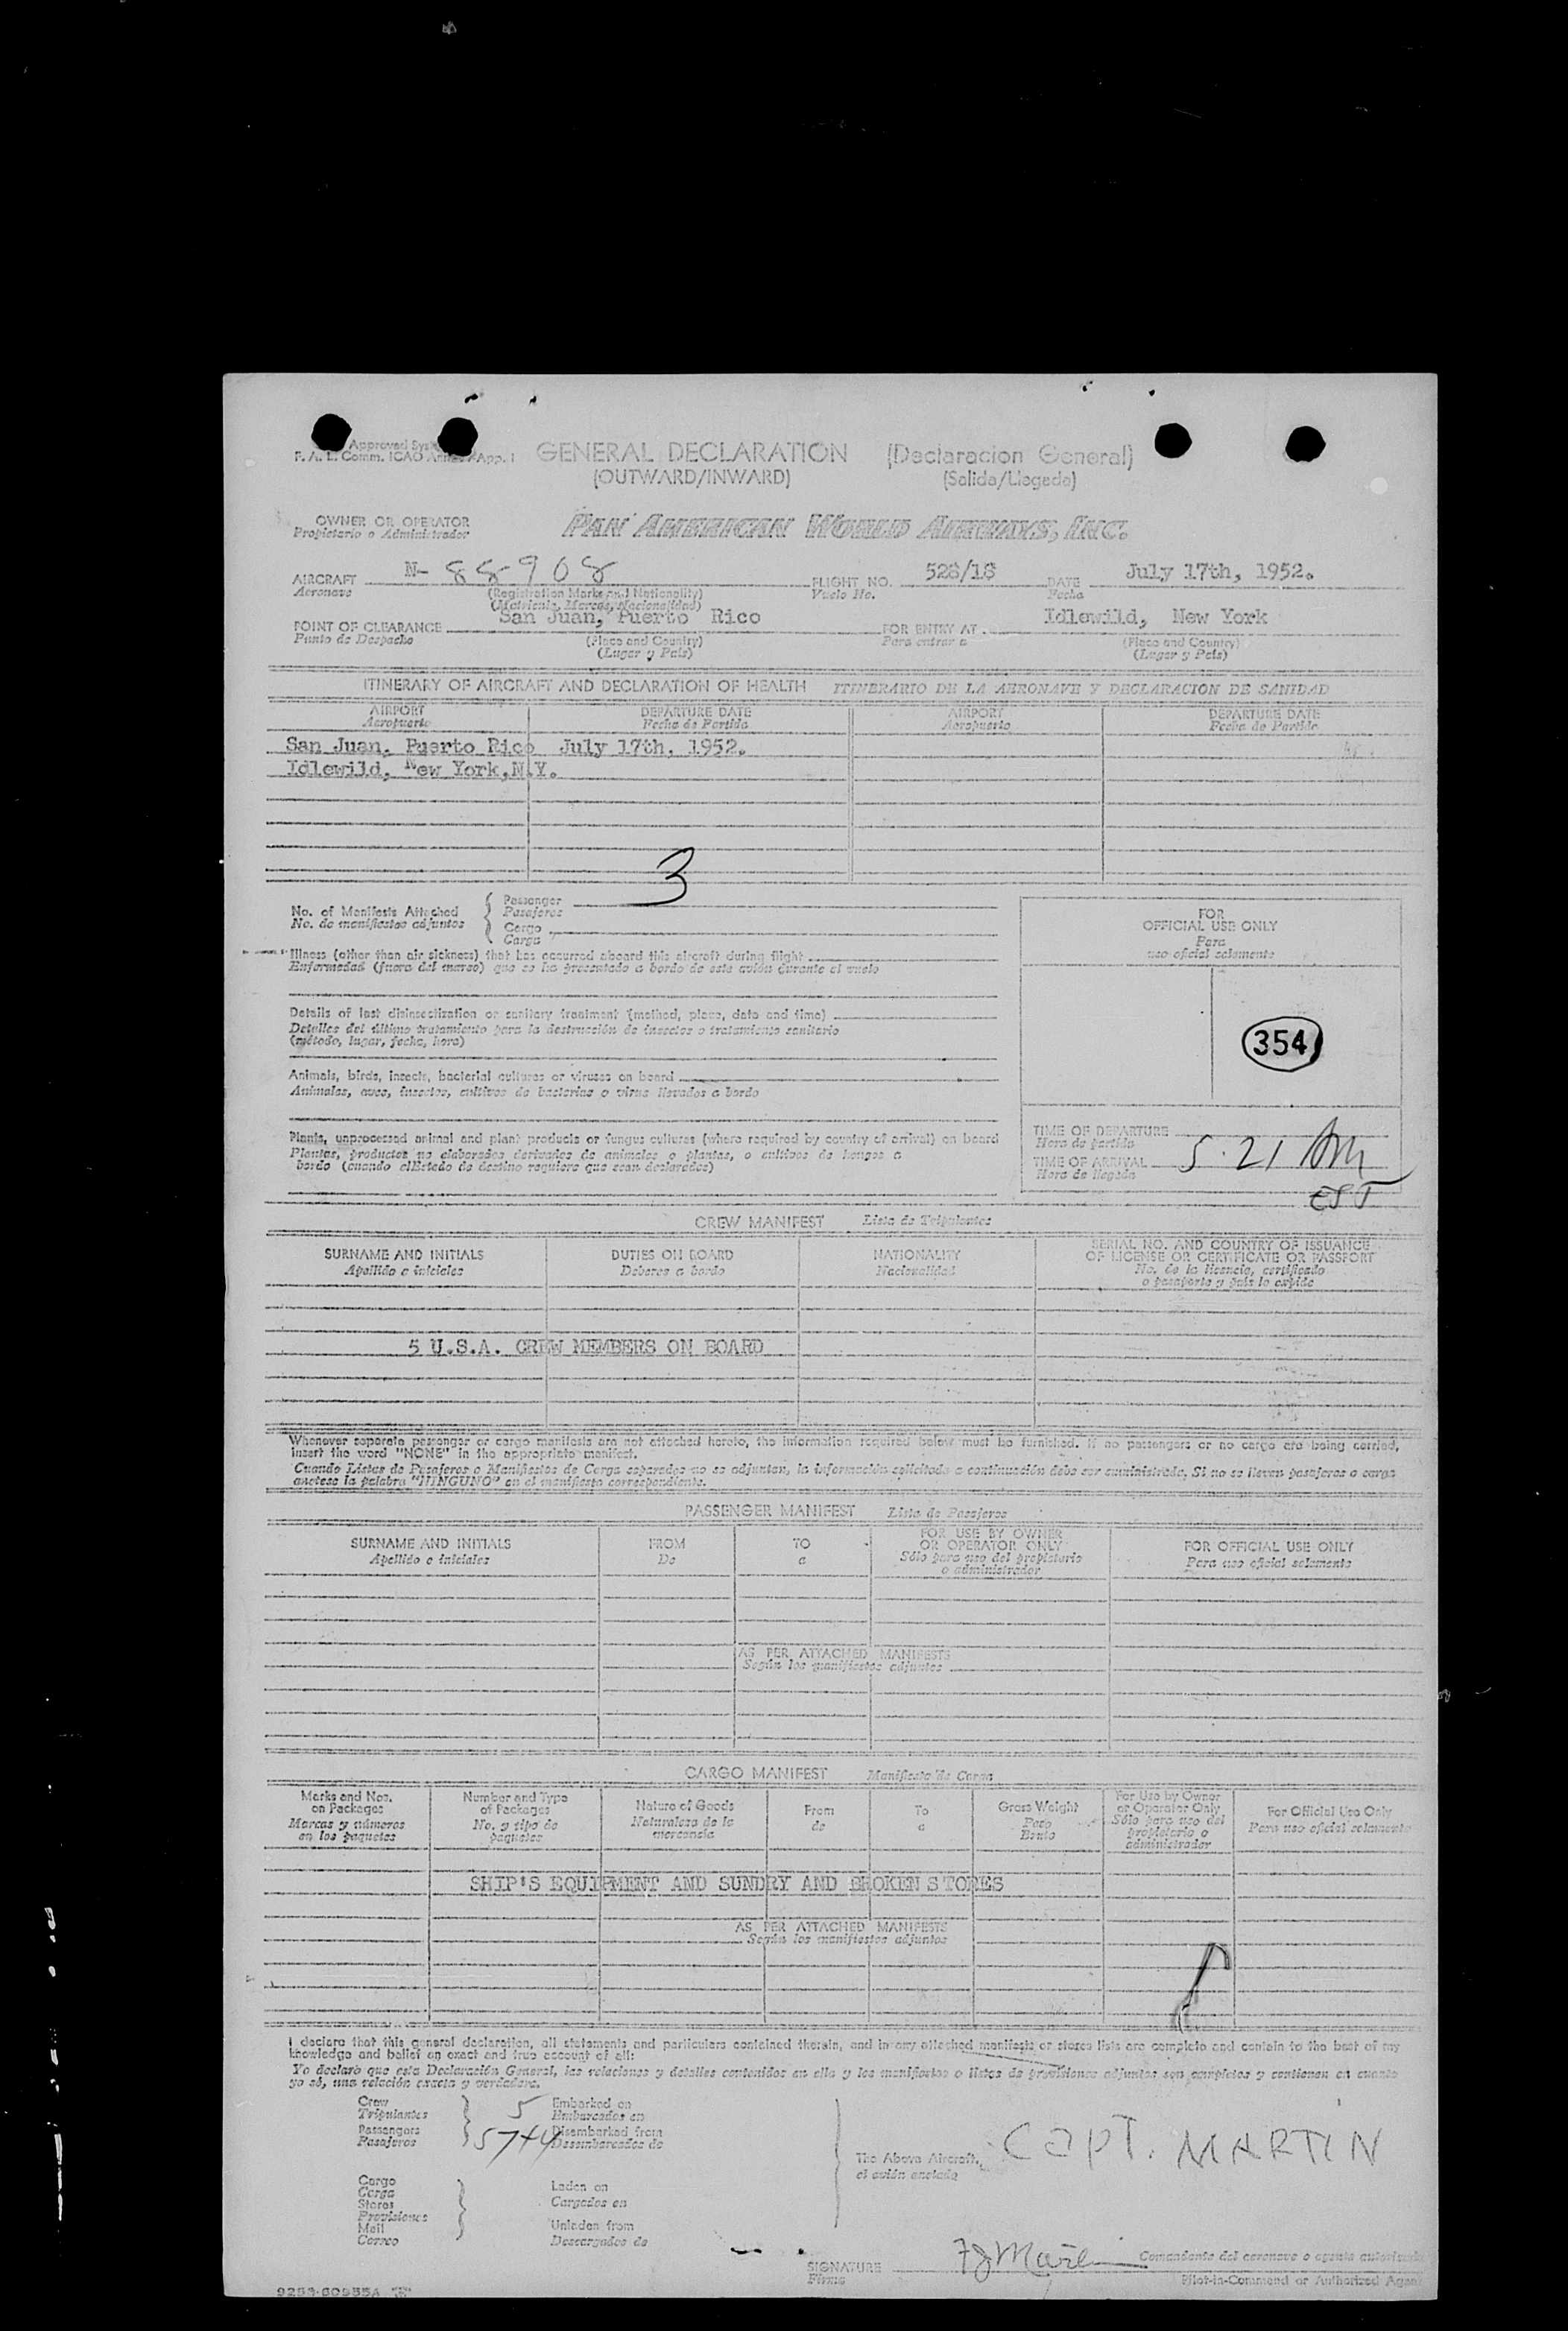 Approved
F. A. L. Comm. ICAO App. I
GENERAL DECLARATION (Declaracion General)
(OUTWARD/INWARD) (Salida/Llegada)
OWNER OR OPERATOR
Propietario o Administrador
PAN AMERICAN WORLD AIRWAYS, INC.
AIRCRAFT N- 88908 FLIGHT NO. 528/18 DATE July 17th, 1952.
Aeronave (Registration Marks and Nationality) Vuelo No. Fecha
(Matricula, Marcas, Nacionalidad)
POINT OF CLEARANCE San Juan, Puerto Rico FOR ENTRY AT Idlewild, New York
Punto de Despacho (Place and Country) Para entrar a (Place and Country)
(Lugar y País) (Lugar y País)
ITINERARY OF AIRCRAFT AND DECLARATION OF HEALTH ITINERARIO DE LA AERONAVE Y DECLARACION DE SANIDAD
AIRPORT DEPARTURE DATE AIRPORT DEPARTURE DATE
Aeropuerto Fecha de Partida Aeropuerto Fecha de Partida
San Juan, Puerto Rico July 17th, 1952.
Idlewild, New York, N.Y.
No. of Manifests Attached
No. de manifiestos adjuntos
Passenger 3
Pasajeros
Cargo
Carga
Illness (other than air sickness) that has occurred aboard this aircraft during flight
Enfermedad (fuera del mareo) que se ha presentado a bordo de este avión durante el vuelo
Details of last disinsectization or sanitary treatment (method, place, date and time)
Detalles del último tratamiento para la destrucción de insectos o tratamiento sanitario
(método, lugar, fecha, hora)
Animals, birds, insects, bacterial cultures or viruses on board
Animales, aves, insectos, cultivos de bacterias o virus llevados a bordo
Plants, unprocessed animal and plant products or fungus cultures (where required by country of arrival) on board
Plantas, productos no elaborados derivados de animales o plantas, o cultivos de hongos a
bordo (cuando el Estado de destino requiera que sean declarados)
FOR
OFFICIAL USE ONLY
Para
uso oficial solamente
354
TIME OF DEPARTURE
Hora de partida
TIME OF ARRIVAL 5.21 AM
Hora de llegada
EST
CREW MANIFEST Lista de Tripulantes
SURNAME AND INITIALS DUTIES ON BOARD NATIONALITY SERIAL NO. AND COUNTRY OF ISSUANCE
OF LICENSE OR CERTIFICATE OR PASSPORT
Apellido e iniciales Deberes a bordo Nacionalidad No. de la licencia, certificado
o pasaporte y país lo expide
5 U.S.A. CREW MEMBERS ON BOARD
Whenever separate passenger or cargo manifests are not attached hereto, the information required below must be furnished. If no passengers or no cargo are being carried,
insert the word "NONE" in the appropriate manifest.
Cuando Listas de Pasajeros o Manifiestos de Carga separados no se adjuntan, la información solicitada a continuación debe ser suministrada. Si no se llevan pasajeros o carga
anótese la palabra "NINGUNO" en el manifiesto correspondiente.
PASSENGER MANIFEST Lista de Pasajeros
SURNAME AND INITIALS FROM TO FOR USE BY OWNER
OR OPERATOR ONLY FOR OFFICIAL USE ONLY
Apellido e iniciales De a Sólo para uso del propietario
o administrador Para uso oficial solamente
AS PER ATTACHED MANIFESTS
Según los manifiestos adjuntos
CARGO MANIFEST Manifiesto de Carga
Marks and Nos.
on Packages
Marcas y números
en los paquetes
Number and Type
of Packages
No. y tipo de
paquetes
Nature of Goods
Naturaleza de la
mercancía
From
de
To
a
Gross Weight
Peso
Bruto
For Use by Owner
or Operator Only
Sólo para uso del
propietario o
administrador
For Official Use Only
Para uso oficial solamente
SHIP'S EQUIPMENT AND SUNDRY AND BROKEN STORES
AS PER ATTACHED MANIFESTS
Según los manifiestos adjuntos
I declare that this general declaration, all statements and particulars contained therein, and in any attached manifests or stores lists are complete and contain to the best of my
knowledge and belief an exact and true account of all:
Yo declaro que esta Declaración General, las relaciones y detalles contenidos en ella y los manifiestos o listas de provisiones adjuntas son completos y contienen en cuanto
yo sé, una relación exacta y verdadera.
Crew 5 Embarked on
Tripulantes Embarcados en
Passengers 57+4 Disembarked from
Pasajeros Desembarcados de
Cargo
Carga Laden on
Stores Cargados en
Provisiones
Mail Unladen from
Correo Descargados de
The Above Aircraft.
el avión anotado
CAPT. MARTIN
SIGNATURE
Firma
Comandante del aeronave o agente autorizado
Pilot-in-Command or Authorized Agent